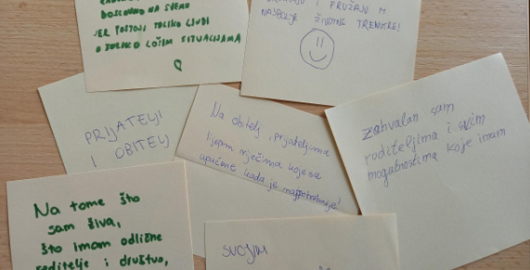 DOSLOVNO NA SVEMU
JER POSTOJI TOLIKO LJUDI
U TOLIKO LOŠIM SITUACIJAMA
I PRUŽAJU MI
ŽIVOTNE TRENUTKE!
PRIJATELJI
I OBITELJ
Na obitelji, prijateljima
lijepim riječima koje me
upućene kada je najpotrebnije!
zahvalan sam
roditeljima i svim
mogućnostima koje imam
Na tome što
sam živa,
što imam odlične
roditelje i društvo,
SVOJIM